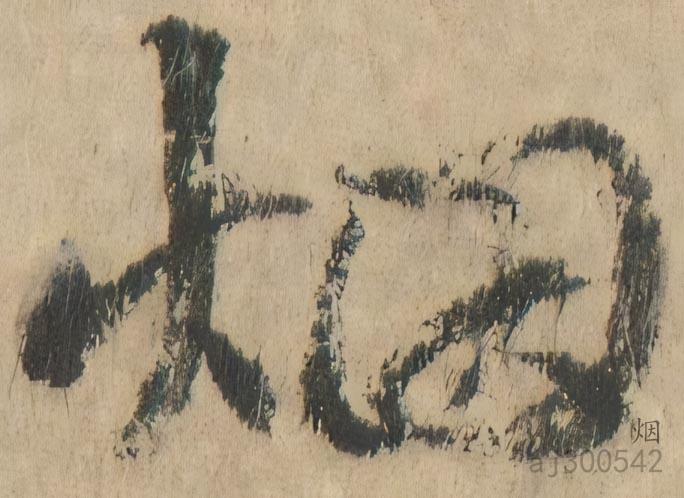 烟
烟
aj300542